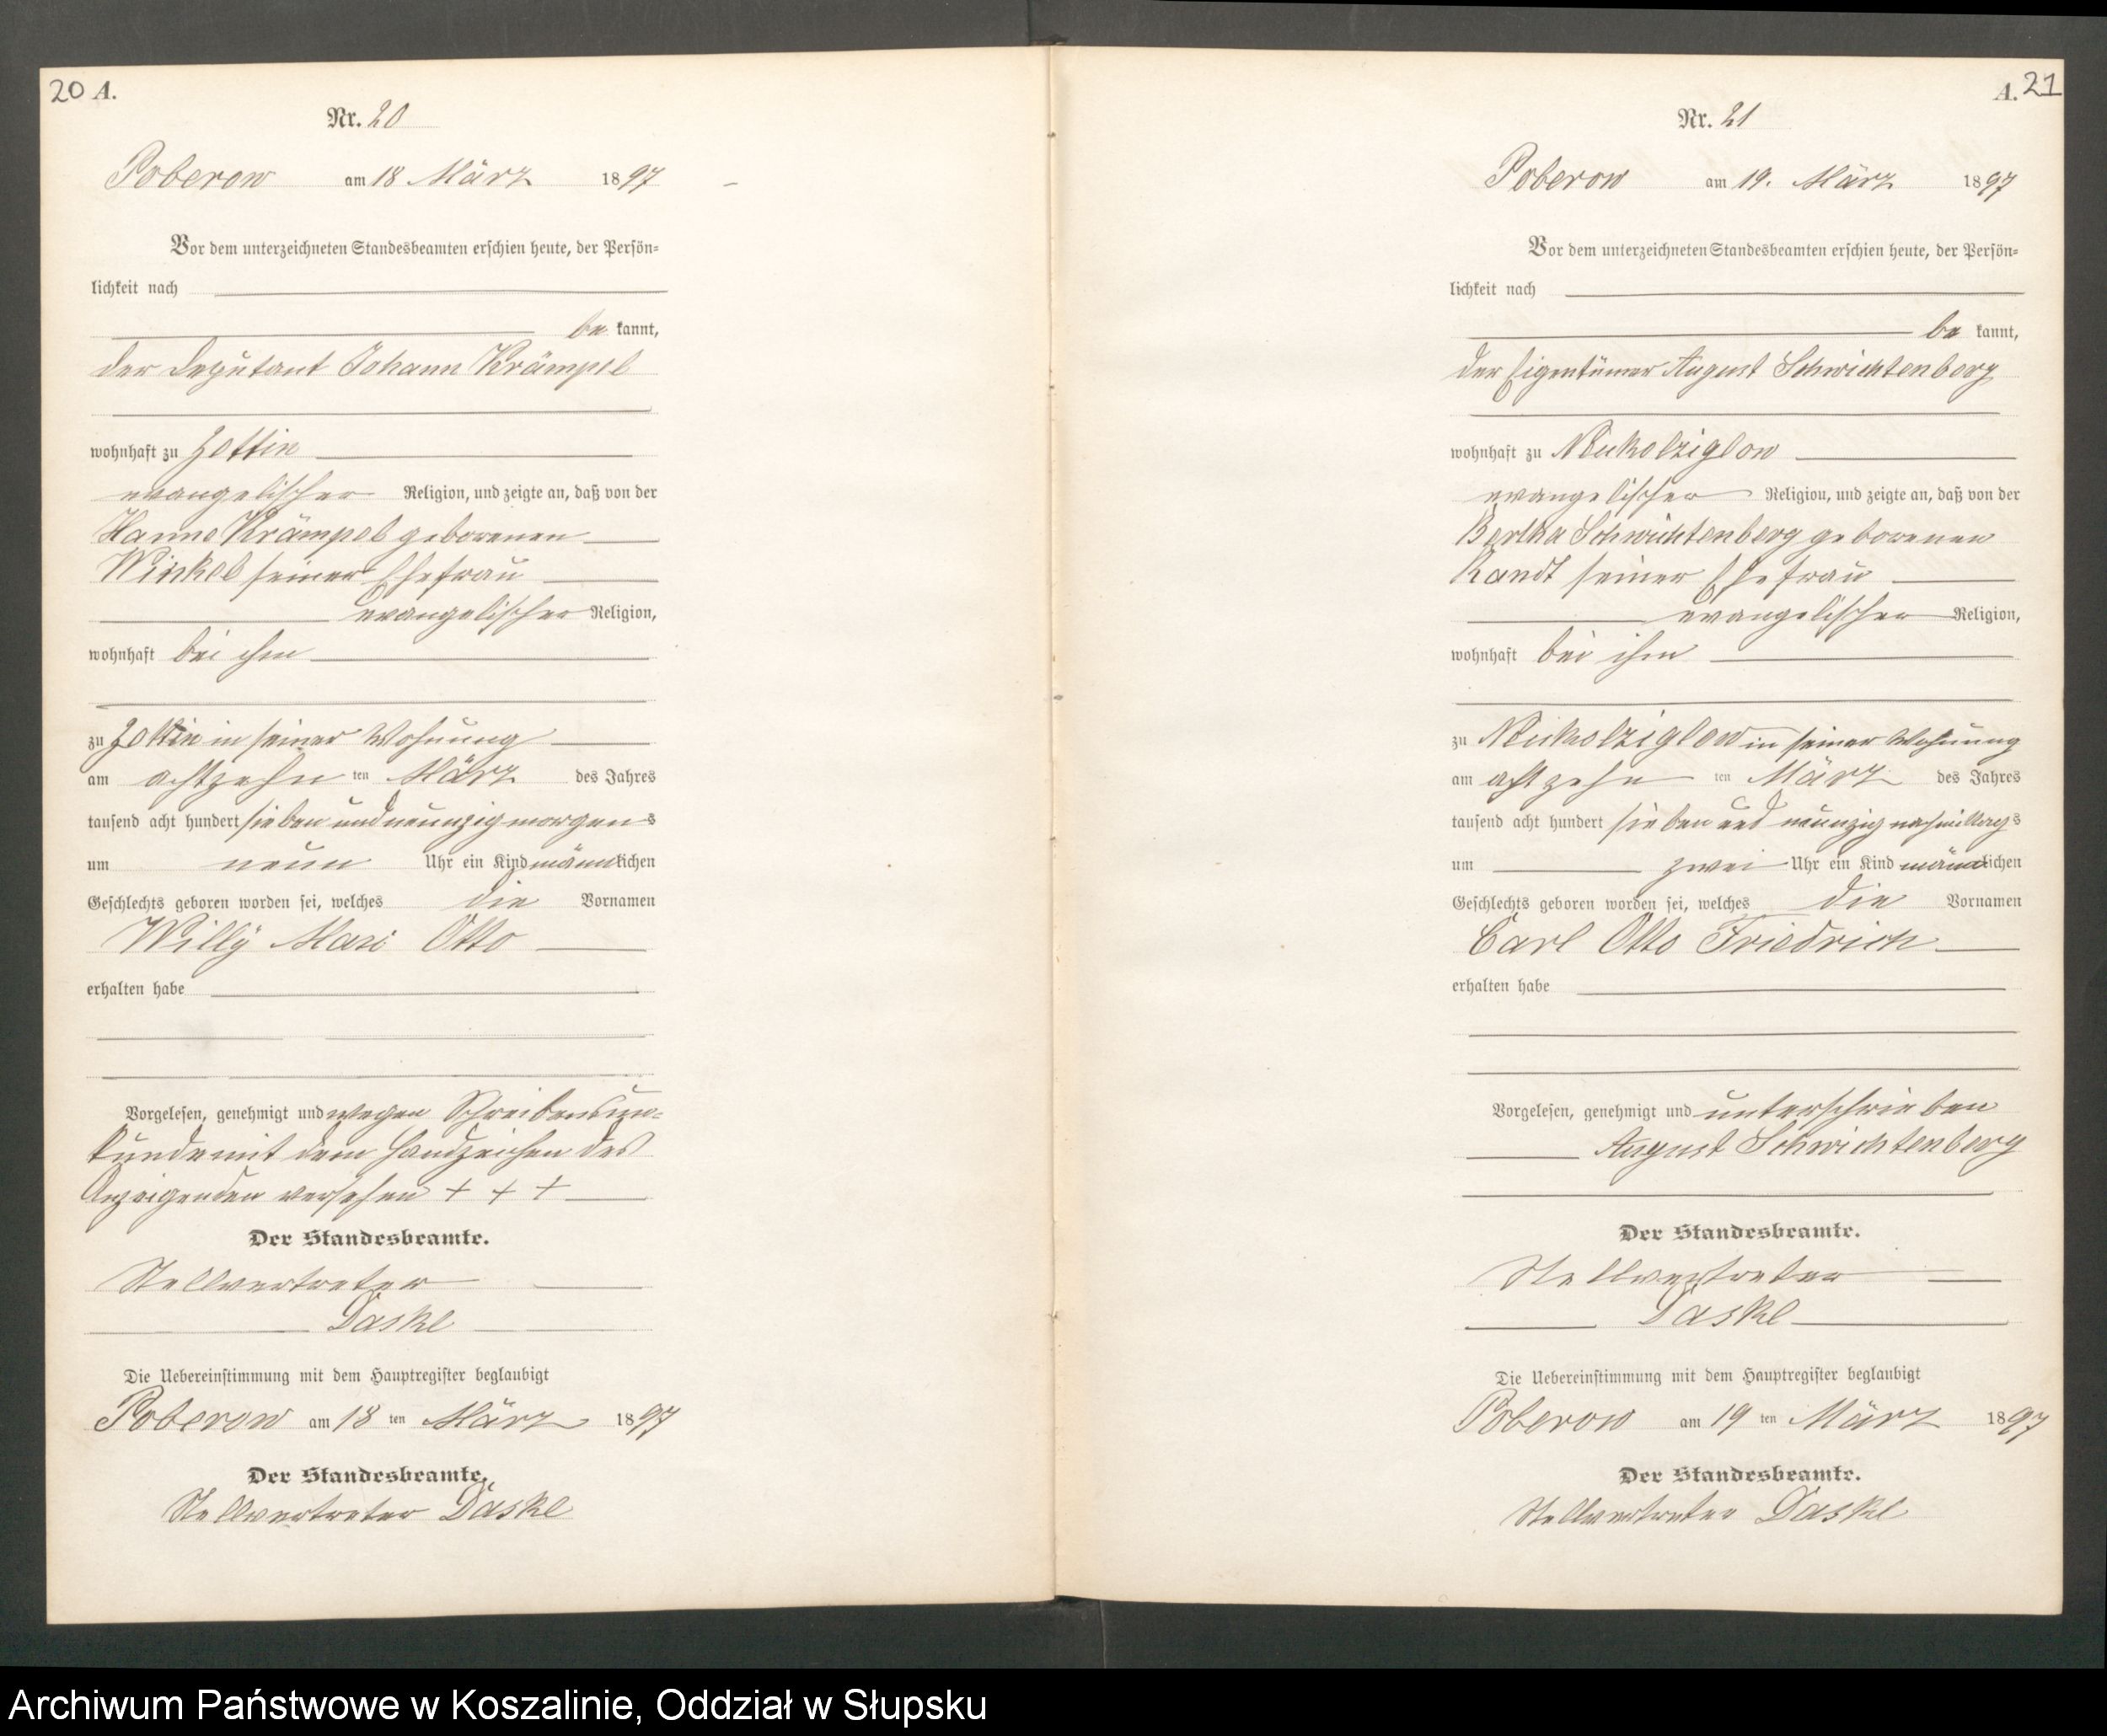 20 A.
Nr. 20
Poberow am 18 März 1897
Vor dem unterzeichneten Standesbeamten erschien heute, der Persön=
lichkeit nach
be kannt,
der Deputant Johann Krämpel
wohnhaft zu Zettin
evangelischer Religion, und zeigte an, daß von der
Hanne Krämpel geborenen
Winkel seiner Ehefrau
evangelischer Religion,
wohnhaft bei ihm
zu Zettin in seiner Wohnung
am achtzehn ten März des Jahres
tausend acht hundert sieben und neunzig morgens
um neun Uhr ein Kind männlichen
Geschlechts geboren worden sei, welches die Vornamen
Willy Otto
erhalten habe
Vorgelesen, genehmigt und wegen Schreibensun=
kunde mit dem Handzeichen des
Anzeigenden versehen + + +
Der Standesbeamte.
Stellvertreter
Daske
Die Uebereinstimmung mit dem Hauptregister beglaubigt
Poberow am 18 ten März 1897
Der Standesbeamte.
Stellvertreter Daske
A. 21
Nr. 21
Poberow am 19. März 1897
Vor dem unterzeichneten Standesbeamten erschien heute, der Persön=
lichkeit nach
be kannt,
der Eigentümer August Schwichtenberg
wohnhaft zu Neukolziglow
evangelischer Religion, und zeigte an, daß von der
Bertha Schwichtenberg geborenen
Kandt seiner Ehefrau
evangelischer Religion,
wohnhaft bei ihm
zu Neukolziglow in seiner Wohnung
am achtzehn ten März des Jahres
tausend acht hundert sieben und neunzig nachmittags
um zwei Uhr ein Kind männlichen
Geschlechts geboren worden sei, welches die Vornamen
Carl Otto Friedrich
erhalten habe
Vorgelesen, genehmigt und unterschrieben
August Schwichtenberg
Der Standesbeamte.
Stellvertreter
Daske
Die Uebereinstimmung mit dem Hauptregister beglaubigt
Poberow am 19 ten März 1897
Der Standesbeamte.
Stellvertreter Daske
Archiwum Państwowe w Koszalinie, Oddział w Słupsku